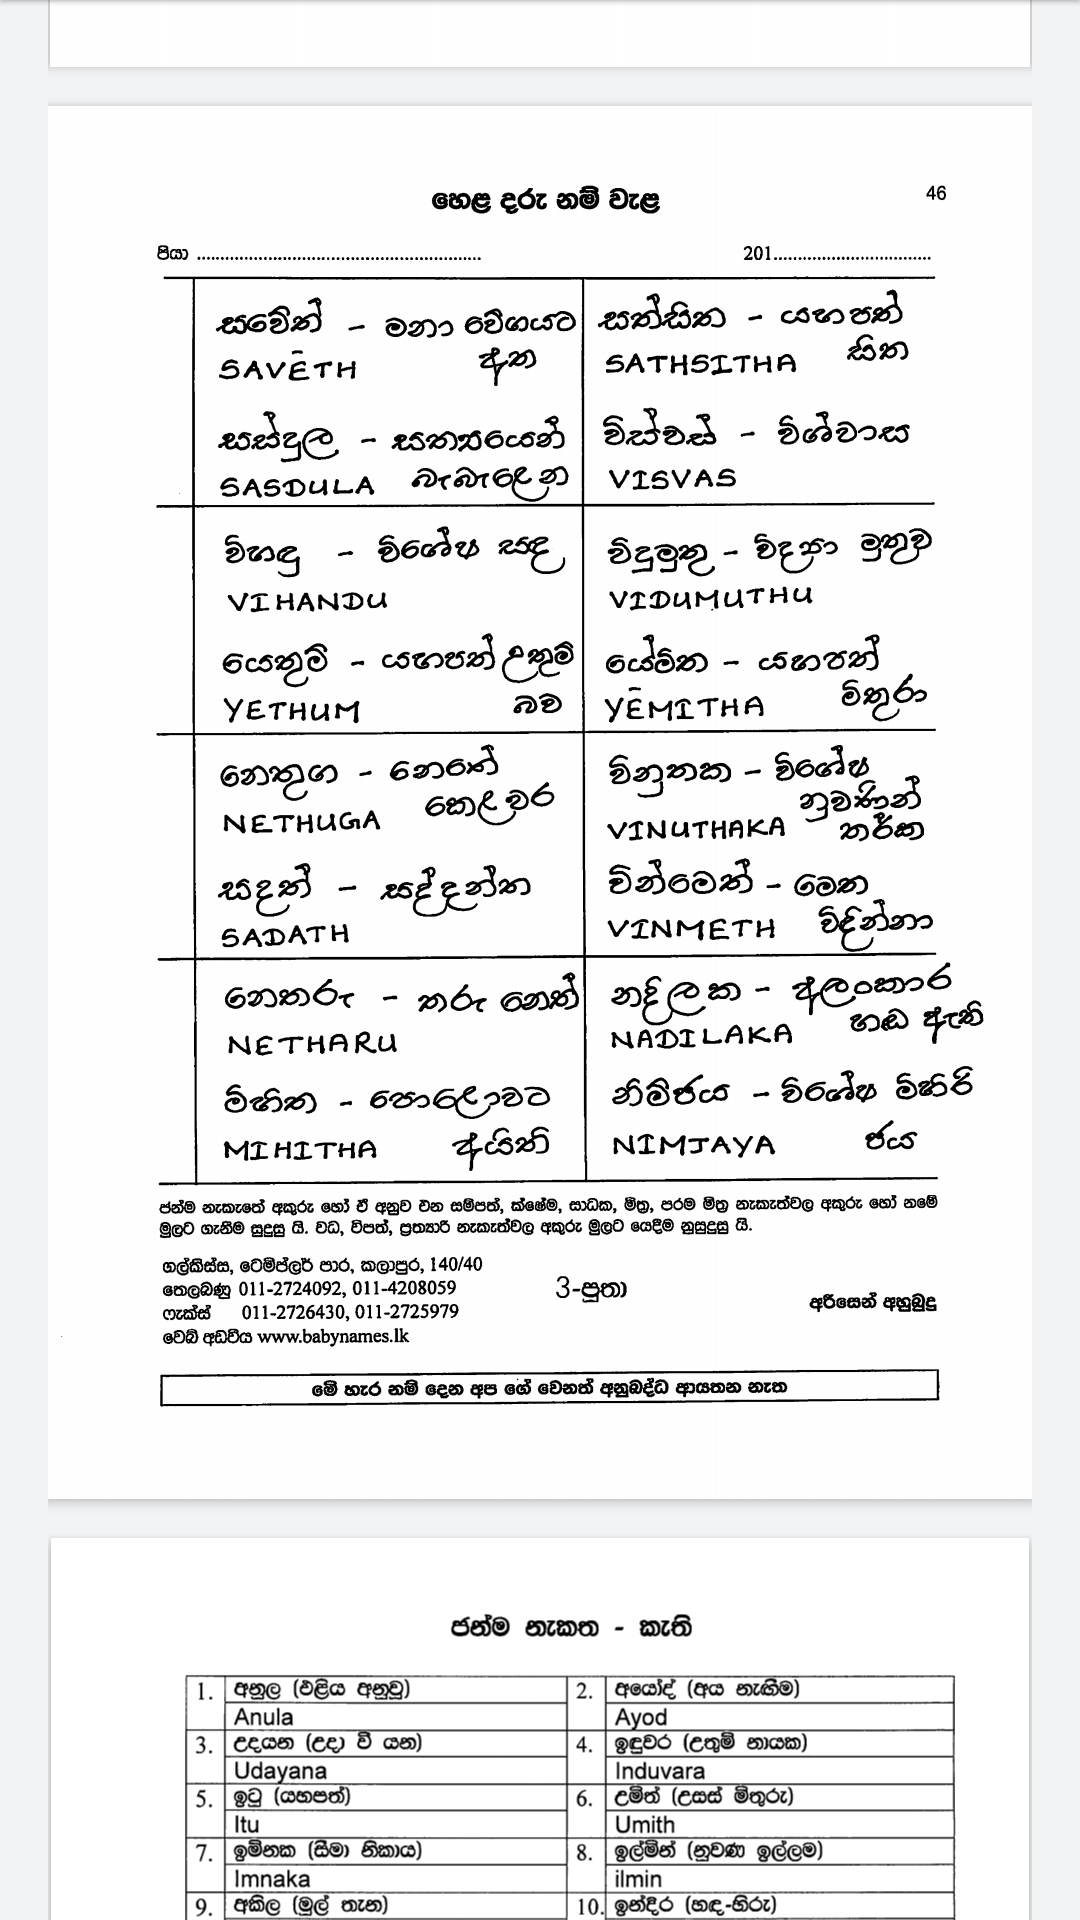 හෙළ දරු නම් වැළ
46
පියා ............................................................
201.................................
සවේත් - මනා වේගයට
SAVĒTH අත
සත්සිත - යහපත්
SATHSITHA සිත
සස්දුල - සත්‍යයෙන්
SASDULA බැබැළෙන
විස්වස් - විශ්වාස
VISVAS
විහඳු - විශේෂ සඳ
VIHANDU
විදුමුතු - විද්‍යා මුතුව
VIDUMUTHU
යෙතුම් - යහපත් උතුම්
YETHUM බව
යේමිත - යහපත්
YĒMITHA මිතුරා
නෙතුග - නෙතේ
NETHUGA කෙළවර
විනුතක - විශේෂ
නුවණින්
VINUTHAKA තර්ක
සදත් - සද්දන්ත
SADATH
වින්මෙත් - මෙත
VINMETH විඳින්නා
නෙතරු - තරු නෙත්
NETHARU
නදිලක - අලංකාර
NADILAKA හඬ ඇති
මිහිත - පොළොවට
MIHITHA අයිති
නිම්ජය - විශේෂ මිහිරි
NIMJAYA ජය
ජන්ම නැකැතේ අකුරු හෝ ඒ අනුව එන සම්පත්, ක්ෂේම, සාධක, මිත්‍ර, පරම මිත්‍ර නැකැත්වල අකුරු හෝ නමේ
මුලට ගැනීම සුදුසු යි. වධ, විපත්, ප්‍රත්‍යාරි නැකැත්වල අකුරු මුලට යෙදීම නුසුදුසු යි.
ගල්කිස්ස, ටෙම්ප්ලර් පාර, කලාපුර, 140/40
තෙලබණු 011-2724092, 011-4208059
ෆැක්ස් 011-2726430, 011-2725979
වෙබ් අඩවිය www.babynames.lk
3-පුතා
අරිසෙන් අහුබුදු
මේ හැර නම් දෙන අප ගේ වෙනත් අනුබද්ධ ආයතන නැත
ජන්ම නැකත - කැති
1. අනුල (එළිය අනුවූ)
Anula
2. අයෝද් (අය නැඟීම)
Ayod
3. උදයන (උදා වී යන)
Udayana
4. ඉඳුවර (උතුම් නායක)
Induvara
5. ඉටු (යහපත්)
Itu
6. උමිත් (උසස් මිතුරු)
Umith
7. ඉම්නක (සීමා නිකාය)
Imnaka
8. ඉල්මින් (නුවණ ඉල්ලම)
ilmin
9. අකිල (මුල් තැන)
10. ඉන්දිර (හඳ-හිරු)